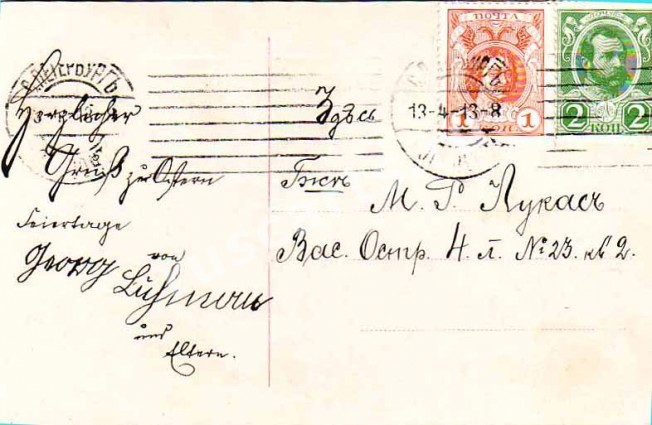 С.Петербургъ
ПОЧТА
13-4-13-8
1 1
КОП
2 2
КОП
Herzlicher
Gruß zu Ostern
Feiertage
von
Georg
und
Eltern.
Здѣсь
М. Г. Лукасъ
Вас. Остр. 4 л. № 23. кв 2.